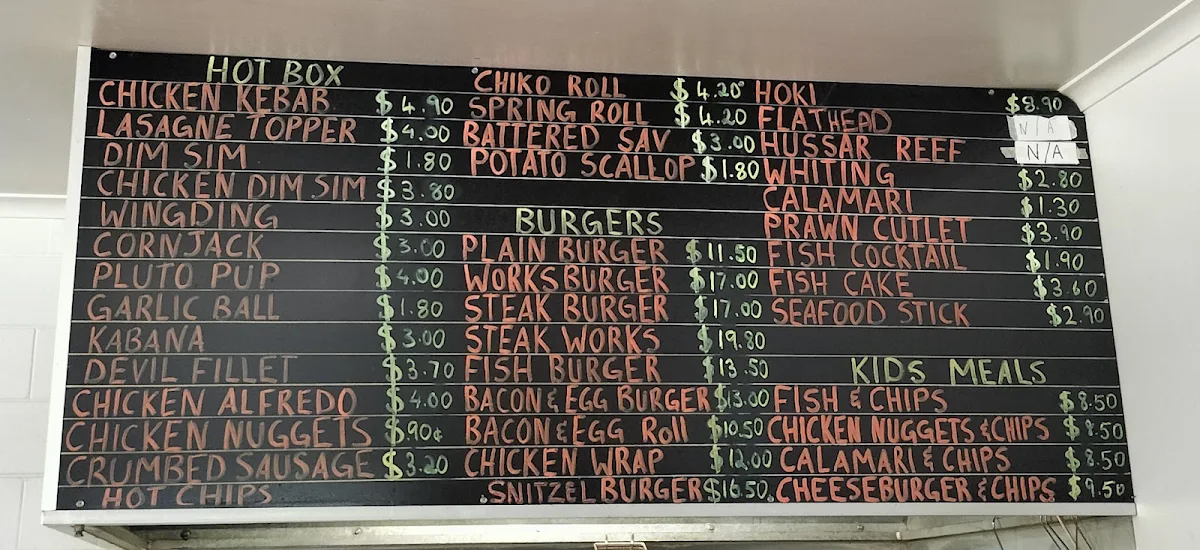 HOT BOX
CHICKEN KEBAB $4.90
LASAGNE TOPPER $4.00
DIM SIM $1.80
CHICKEN DIM SIM $3.80
WINGDING $3.00
CORNJACK $3.00
PLUTO PUP $4.00
GARLIC BALL $1.80
KABANA $3.00
DEVIL FILLET $3.70
CHICKEN ALFREDO $4.00
CHICKEN NUGGETS $.90¢
CRUMBED SAUSAGE $3.20
HOT CHIPS
CHIKO ROLL $4.20
SPRING ROLL $4.20
BATTERED SAV $3.00
POTATO SCALLOP $1.80
BURGERS
PLAIN BURGER $11.50
WORKS BURGER $17.00
STEAK BURGER $17.00
STEAK WORKS $19.80
FISH BURGER $13.50
BACON & EGG BURGER $13.00
BACON & EGG Roll $10.50
CHICKEN WRAP $12.00
SNITZEL BURGER $16.50
HOKI $8.90
FLATHEAD N/A
HUSSAR REEF N/A
WHITING $2.80
CALAMARI $1.30
PRAWN CUTLET $3.90
FISH COCKTAIL $1.90
FISH CAKE $3.60
SEAFOOD STICK $2.90
KIDS MEALS
FISH & CHIPS $8.50
CHICKEN NUGGETS & CHIPS $8.50
CALAMARI & CHIPS $8.50
CHEESEBURGER & CHIPS $9.50